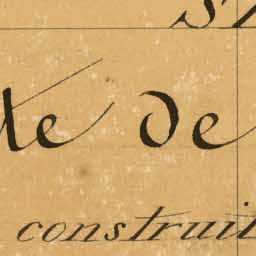 te de
construit